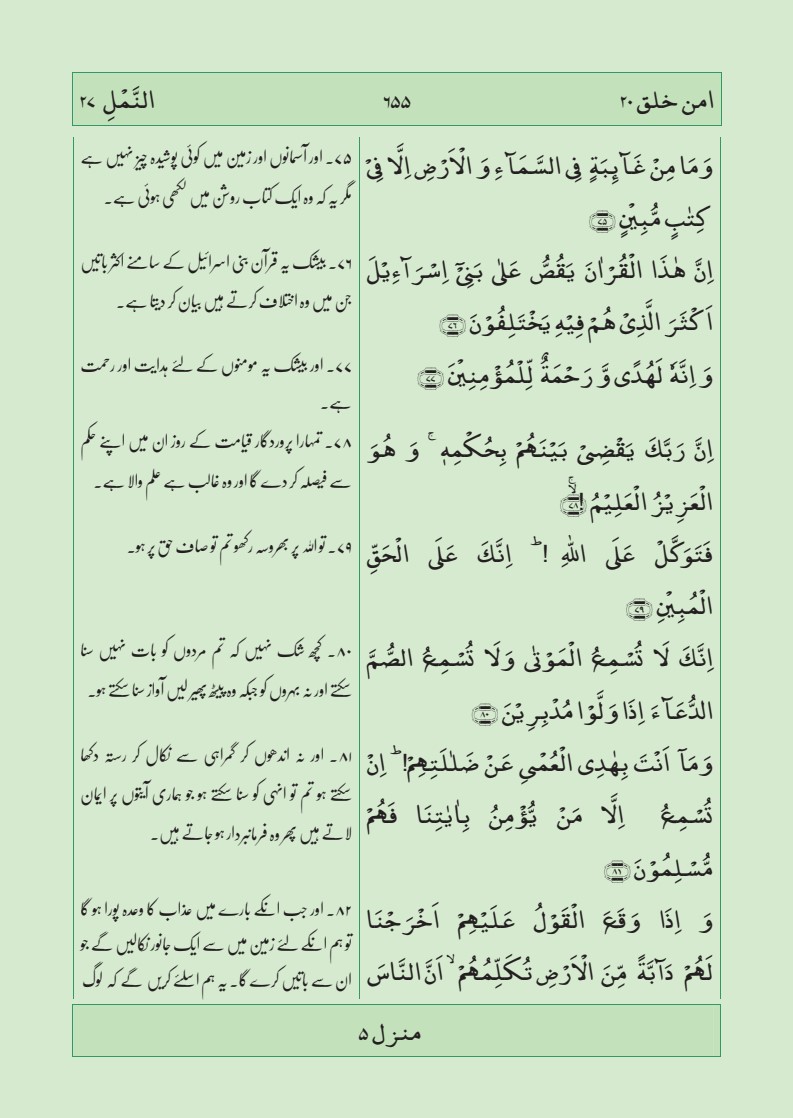 امن خلق ۲۰
۶۵۵
النَّمْلِ ۲۷
وَمَا مِنْ غَآئِبَةٍ فِی السَّمَآءِ وَ الْاَرْضِ اِلَّا فِیْ
كِتٰبٍ مُّبِیْنٍ ﴿۷۵﴾
اِنَّ هٰذَا الْقُرْاٰنَ یَقُصُّ عَلٰی بَنِیْۤ اِسْرَآءِیْلَ
اَكْثَرَ الَّذِیْ هُمْ فِیْهِ یَخْتَلِفُوْنَ ﴿۷۶﴾
وَ اِنَّهٗ لَهُدًی وَّ رَحْمَةٌ لِّلْمُؤْمِنِیْنَ ﴿۷۷﴾
اِنَّ رَبَّكَ یَقْضِیْ بَیْنَهُمْ بِحُكْمِهٖ ۚ وَ هُوَ
الْعَزِیْزُ الْعَلِیْمُ ! ﴿۷۸﴾
فَتَوَكَّلْ عَلَی اللّٰهِ ! ؕ اِنَّكَ عَلَی الْحَقِّ
الْمُبِیْنِ ﴿۷۹﴾
اِنَّكَ لَا تُسْمِعُ الْمَوْتٰی وَلَا تُسْمِعُ الصُّمَّ
الدُّعَآءَ اِذَا وَلَّوْا مُدْبِرِیْنَ ﴿۸۰﴾
وَمَاۤ اَنْتَ بِهٰدِی الْعُمْیِ عَنْ ضَلٰلَتِهِمْ! ؕ اِنْ
تُسْمِعُ اِلَّا مَنْ یُّؤْمِنُ بِاٰیٰتِنَا فَهُمْ
مُّسْلِمُوْنَ ﴿۸۱﴾
وَ اِذَا وَقَعَ الْقَوْلُ عَلَیْهِمْ اَخْرَجْنَا
لَهُمْ دَآبَّةً مِّنَ الْاَرْضِ تُكَلِّمُهُمْ ۙ اَنَّ النَّاسَ
۷۵۔ اور آسمانوں اور زمین میں کوئی پوشیدہ چیز نہیں ہے
مگر یہ کہ وہ ایک کتاب روشن میں لکھی ہوئی ہے۔
۷۶۔ بیشک یہ قرآن بنی اسرائیل کے سامنے اکثر باتیں
جن میں وہ اختلاف کرتے ہیں بیان کر دیتا ہے۔
۷۷۔ اور بیشک یہ مومنوں کے لئے ہدایت اور رحمت
ہے۔
۷۸۔ تمہارا پروردگار قیامت کے روز ان میں اپنے حکم
سے فیصلہ کر دے گا اور وہ غالب ہے علم والا ہے۔
۷۹۔ تو اللہ پر بھروسہ رکھو تم تو صاف حق پر ہو۔
۸۰۔ کچھ شک نہیں کہ تم مردوں کو بات نہیں سنا
سکتے اور نہ بہروں کو جبکہ وہ پیٹھ پھیر لیں آواز سنا سکتے ہو۔
۸۱۔ اور نہ اندھوں کو گمراہی سے نکال کر رستہ دکھا
سکتے ہو تم تو انہی کو سنا سکتے ہو جو ہماری آیتوں پر ایمان
لاتے ہیں پھر وہ فرمانبردار ہو جاتے ہیں۔
۸۲۔ اور جب انکے بارے میں عذاب کا وعدہ پورا ہو گا
تو ہم انکے لئے زمین میں سے ایک جانور نکالیں گے جو
ان سے باتیں کرے گا۔ یہ ہم اسلئے کریں گے کہ لوگ
منزل ۵